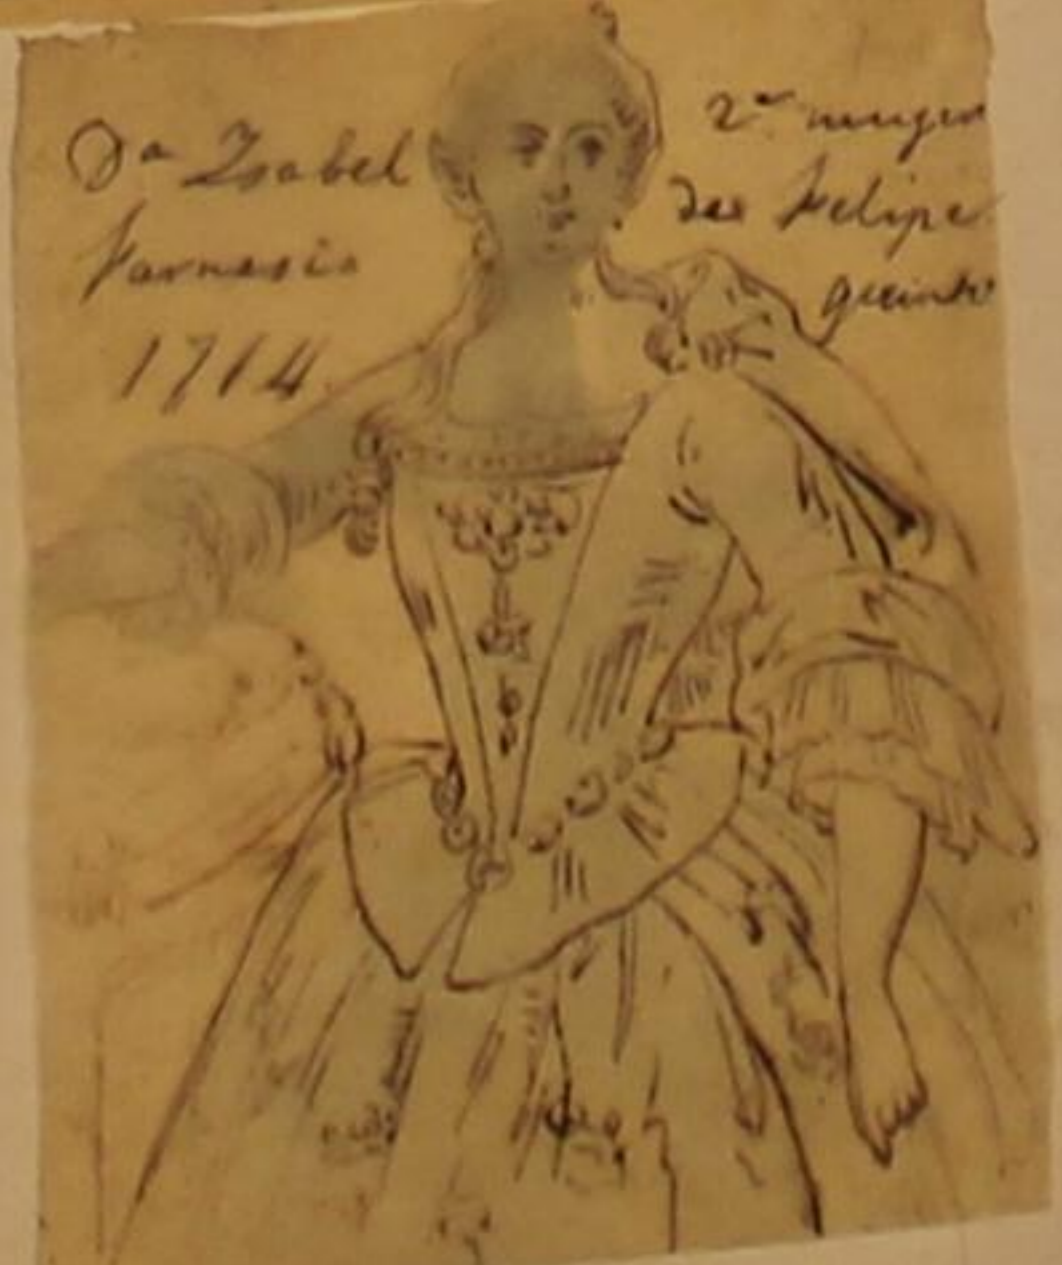 Dª Isabel
Farnesio
1714
2ª muger
de Felipe
quinto